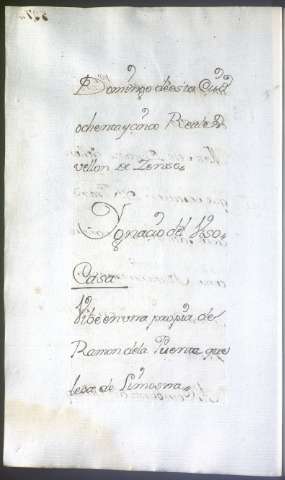 Domingo de esta Ciud.
ochenta y cinco Reales
vellon de Zenso.
Ygnacio del
Casa
Vibe en una propia de
Ramon de la Puente que
le da de Limosna.